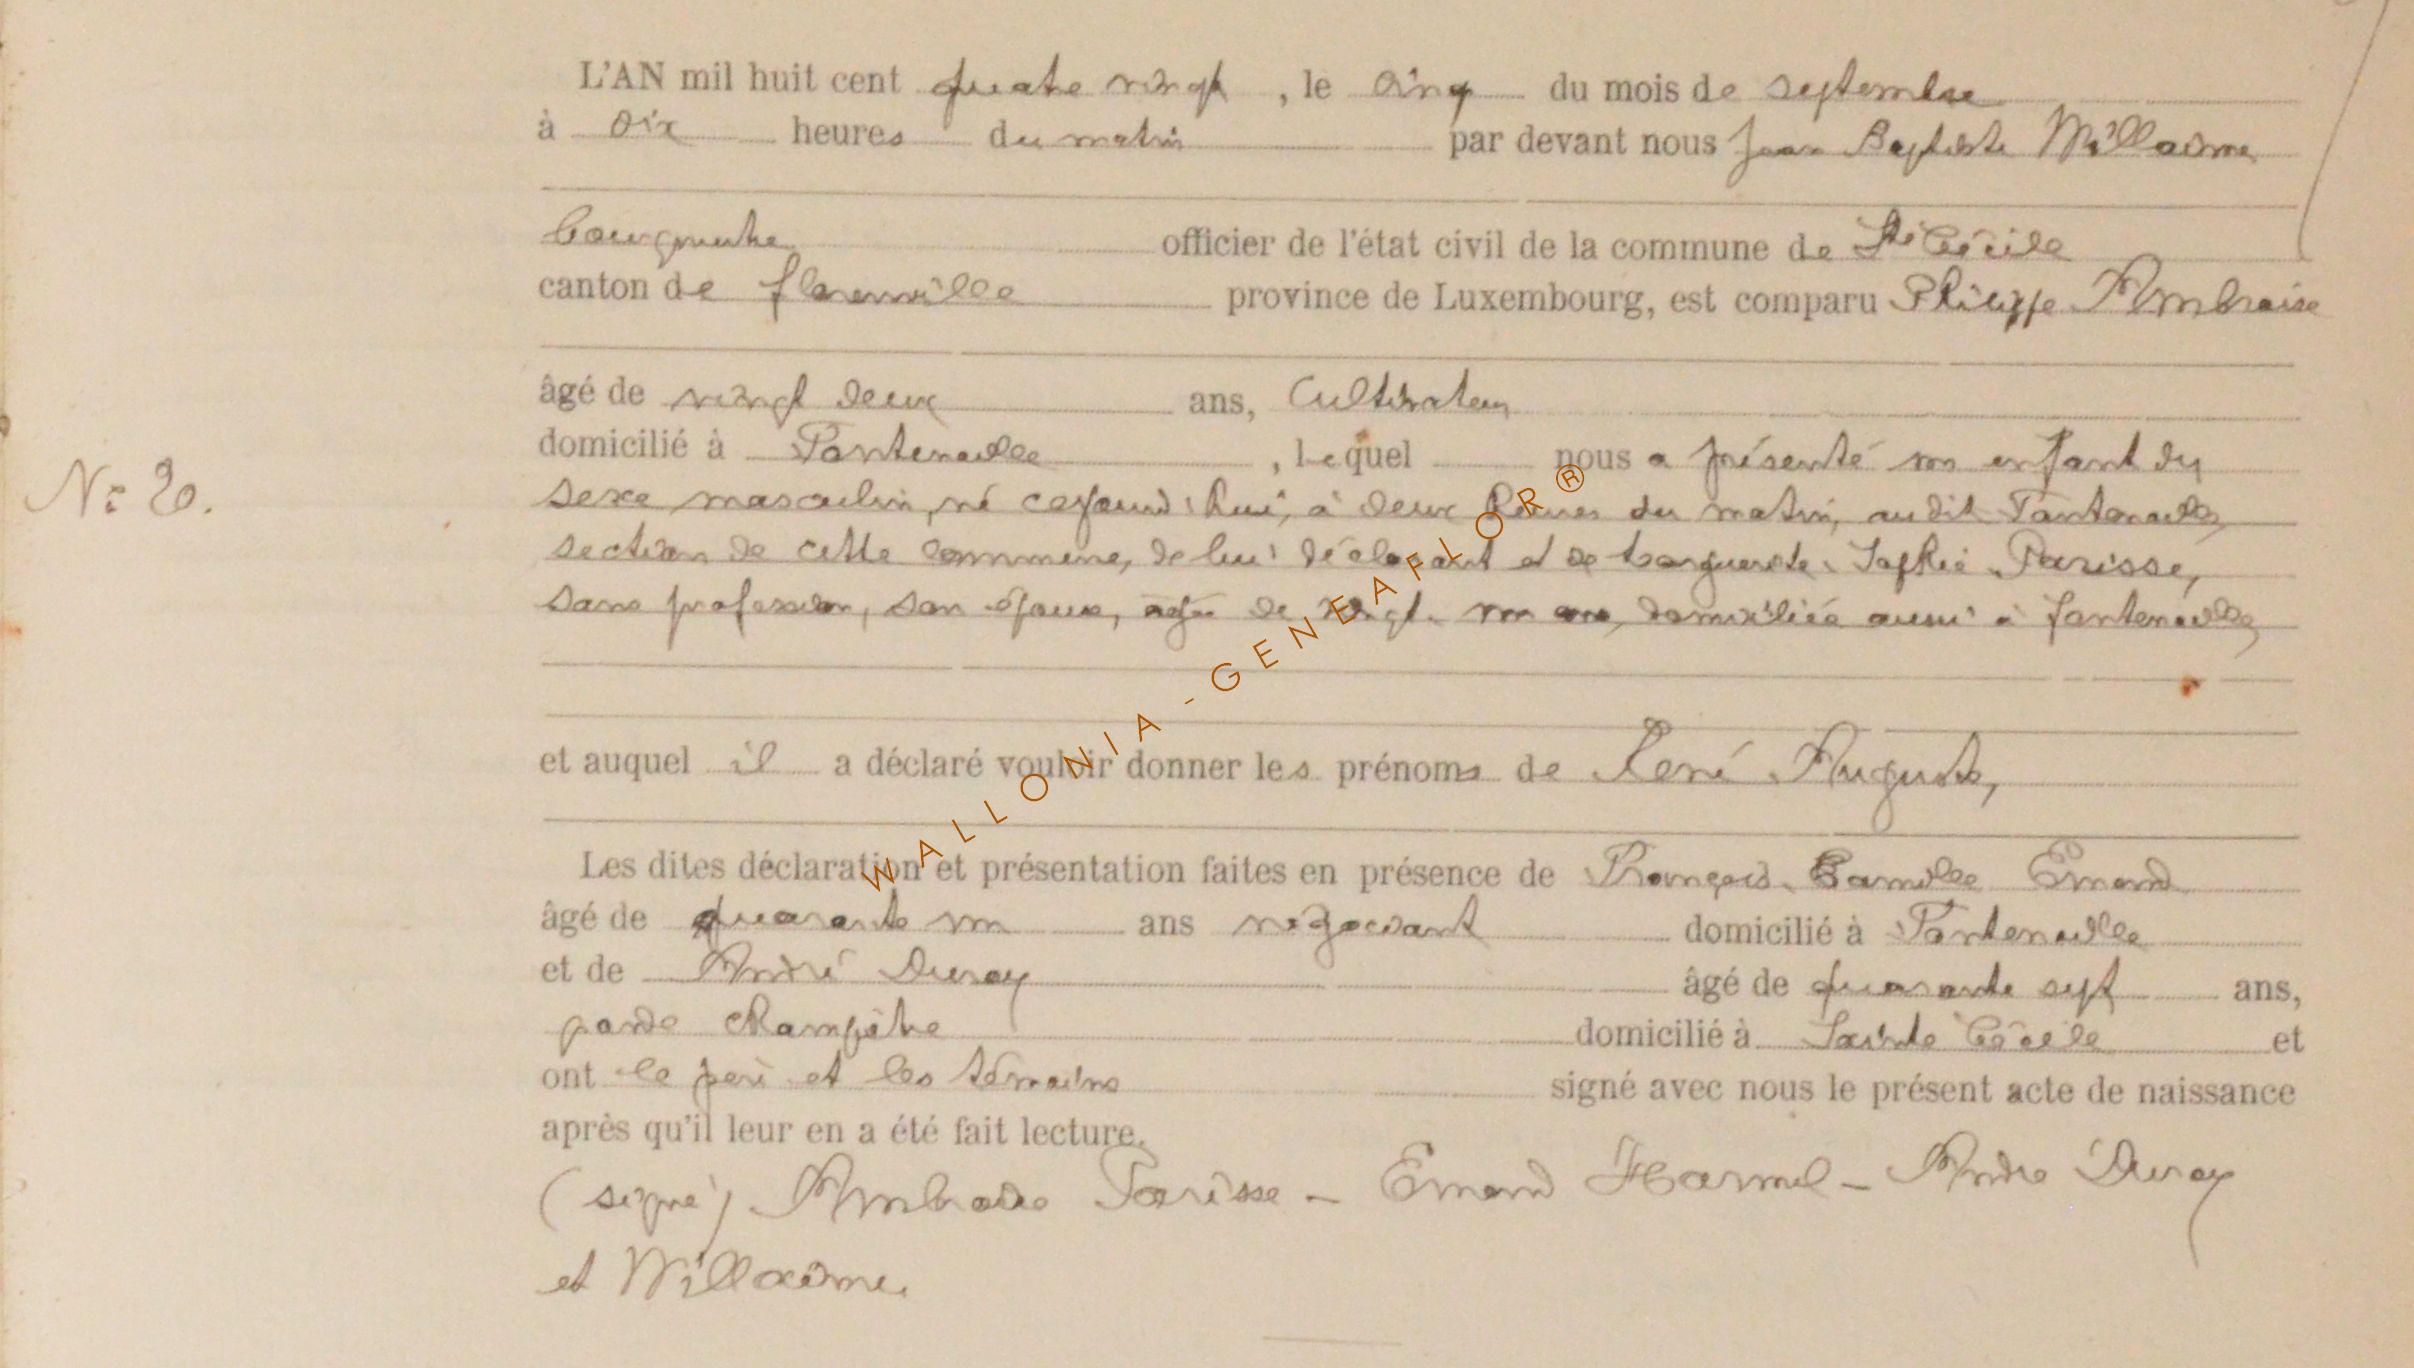 L'AN mil huit cent quatre vingt, le cinq du mois de septembre
à dix heures du matin par devant nous Jean Baptiste Willaime
bourgmestre officier de l'état civil de la commune de Ste Cécile
canton de florenville province de Luxembourg, est comparu Philippe Ambroise
âgé de vingt deux ans, Cultivateur
domicilié à Fontenoille, lequel nous a présenté un enfant du
N° 20.
sexe masculin, né cejourd'hui, à deux heures du matin, audit Fontenoille,
section de cette commune, de lui déclarant et de Marguerite Sophie Parisse,
sans profession, son épouse, agée de vingt un ans, domiciliée aussi à fontenoille,
et auquel il a déclaré vouloir donner les prénoms de René Auguste,
Les dites déclaration et présentation faites en présence de François Camille Emond
âgé de quarante un ans négociant domicilié à Fontenoille
et de André Duroy âgé de quarante sept ans,
garde champêtre domicilié à Sainte Cécile et
ont le père et les témoins signé avec nous le présent acte de naissance
après qu'il leur en a été fait lecture.
(signé) Ambroise Parisse - Emond Harmel - André Duroy
et Willaime.
WALLONIA - GENEAFLOR®